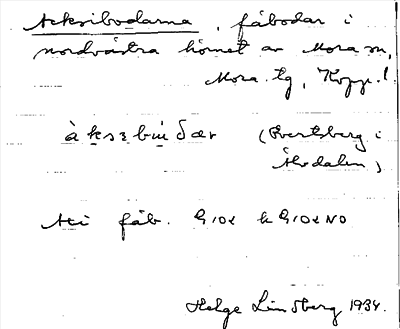 Acksibodarna, fäbodar i
nordvästra hörnet av Mora sn,
Mora tg, Kopp. l.
(Evertsberg i
Älvdalen)
fäb. G10x k G10x NO
Helge Lindberg 1934.